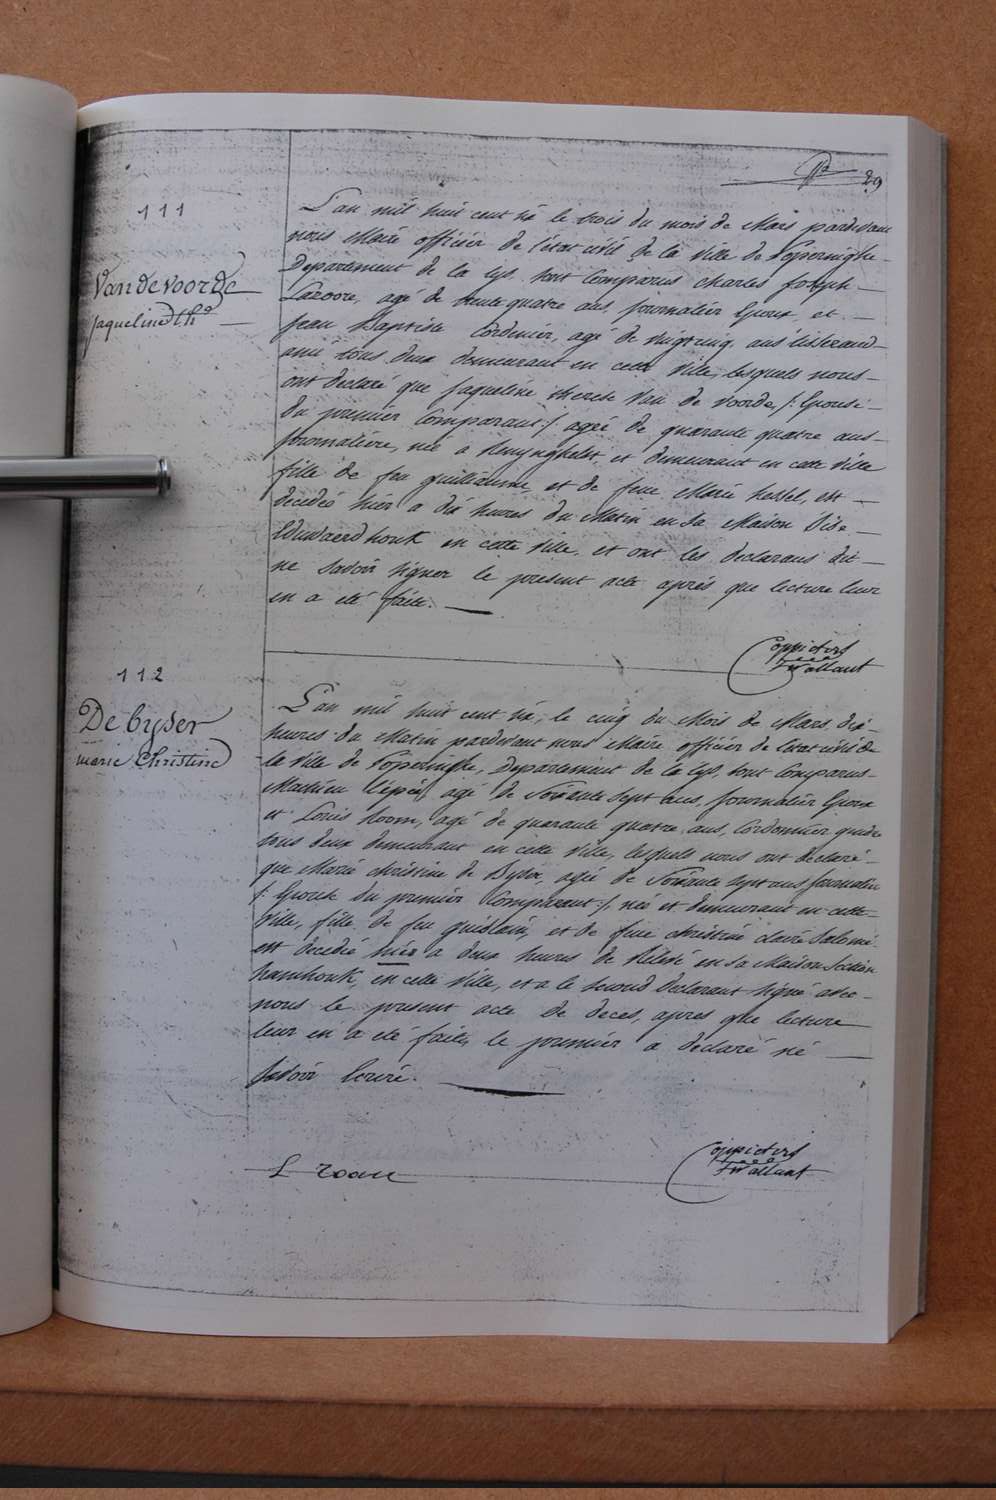 29
111
Vandevoorde
Jaqueline Thr
L'an mil huit cent six le trois du mois de Mars pardevant
nous Maire officier de l'état civil de la Ville de Poperinghe
Département de la Lys, sont Comparus Charles Joseph
agé de trente quatre ans, journalier Epoux, et
Jean Baptiste Cordenier, agé de vingt cinq ans tisserand
ami tous deux demeurant en cette Ville, lesquels nous
ont declaré que Jaqueline therese Van de Voorde /: Epouse
du premier Comparant :/ agée de quarante quatre ans
journaliere, née a Renynghelst, et demeurant en cette Ville
fille de feu guilliaume, et de feue Marie hessel, est
decedée hier a dix heures du Matin en sa Maison Sise
Eduwaerdhouk en cette Ville, et ont les declarans dit
ne savoir signer le present acte aprés que lecture leur
en a eté faite.
Coppieters
Wallant
112
De byser
marie Christine
L'an mil huit cent six, le cinq du Mois de Mars, dix
heures du Matin pardevant nous Maire officier de l'état civil de
la Ville de Poperinghe, Departement de la Lys, sont Comparus
Mathieu agé de Soixante Sept ans, journalier Epoux
et Louis Room, agé de quarante quatre ans, Cordonnier
tous deux demeurant en cette Ville, lesquels nous ont declaré
que Marie christine de Byser, agée de Soixante sept ans
/: Epouse du premier Comparant :/ née et demeurant en cette
Ville, fille de feu guislain, et de feue christine claire Salomé
est decedée hier a deux heures de en sa Maison Section
hamhouk, en cette Ville, et a le second declarant signé avec
nous le present acte de deces, apres que lecture
leur en a eté faite, le premier a declaré né
savoir Ecrire.
L room
Coppieters
Wallant